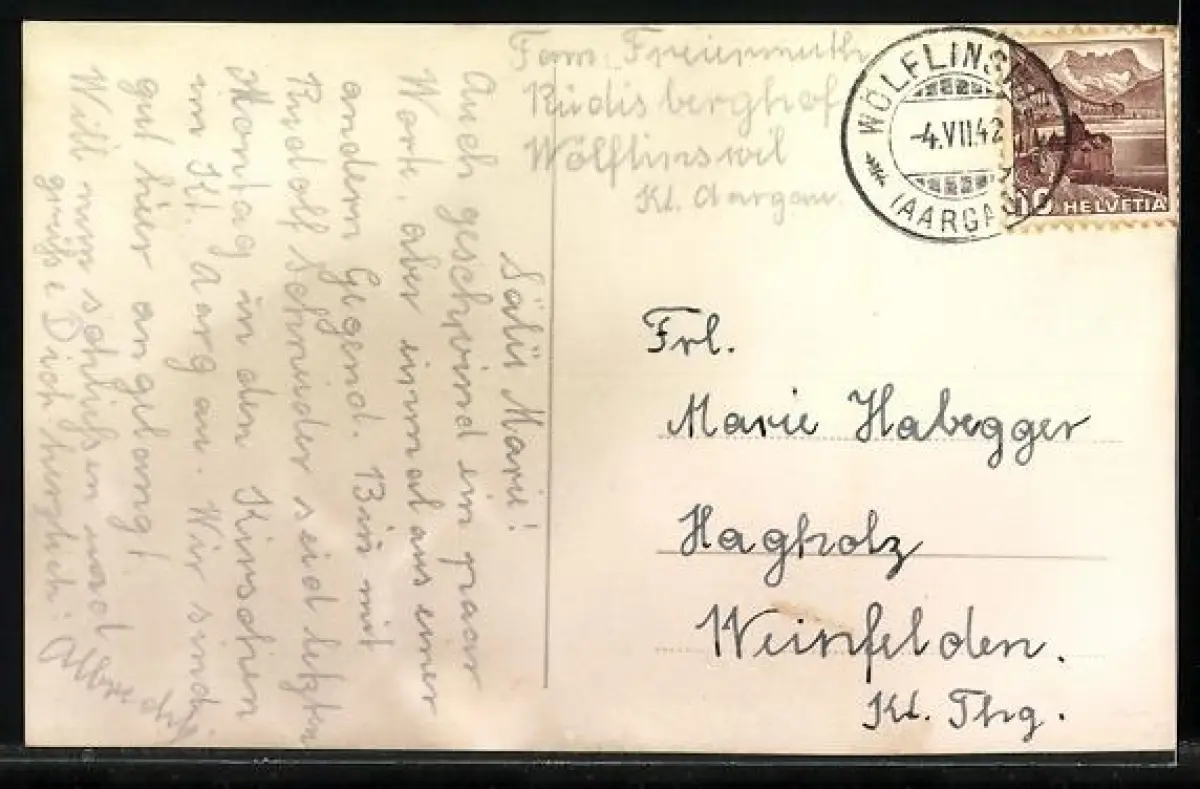 Fam. Freiermuth
Rüdisberghof
Wölflinswil
Kt. Aargau.
WÖLFLINSWIL
-4.VII.42
(AARGAU)
10 HELVETIA
Salü Marie!
Auch geschwind ein paar
Worte, aber einmal aus einer
andern Gegend. Bin mit
Rudolf Schnider seid letzten
Montag in den Kirschen
im Kt. Aargau. Wir sind
gut hier angelangt.
Will nun schliessen und
grüsse Dich herzlich:
Frl.
Marie Habegger
Hagholz
Weinfelden.
Kt. Thg.